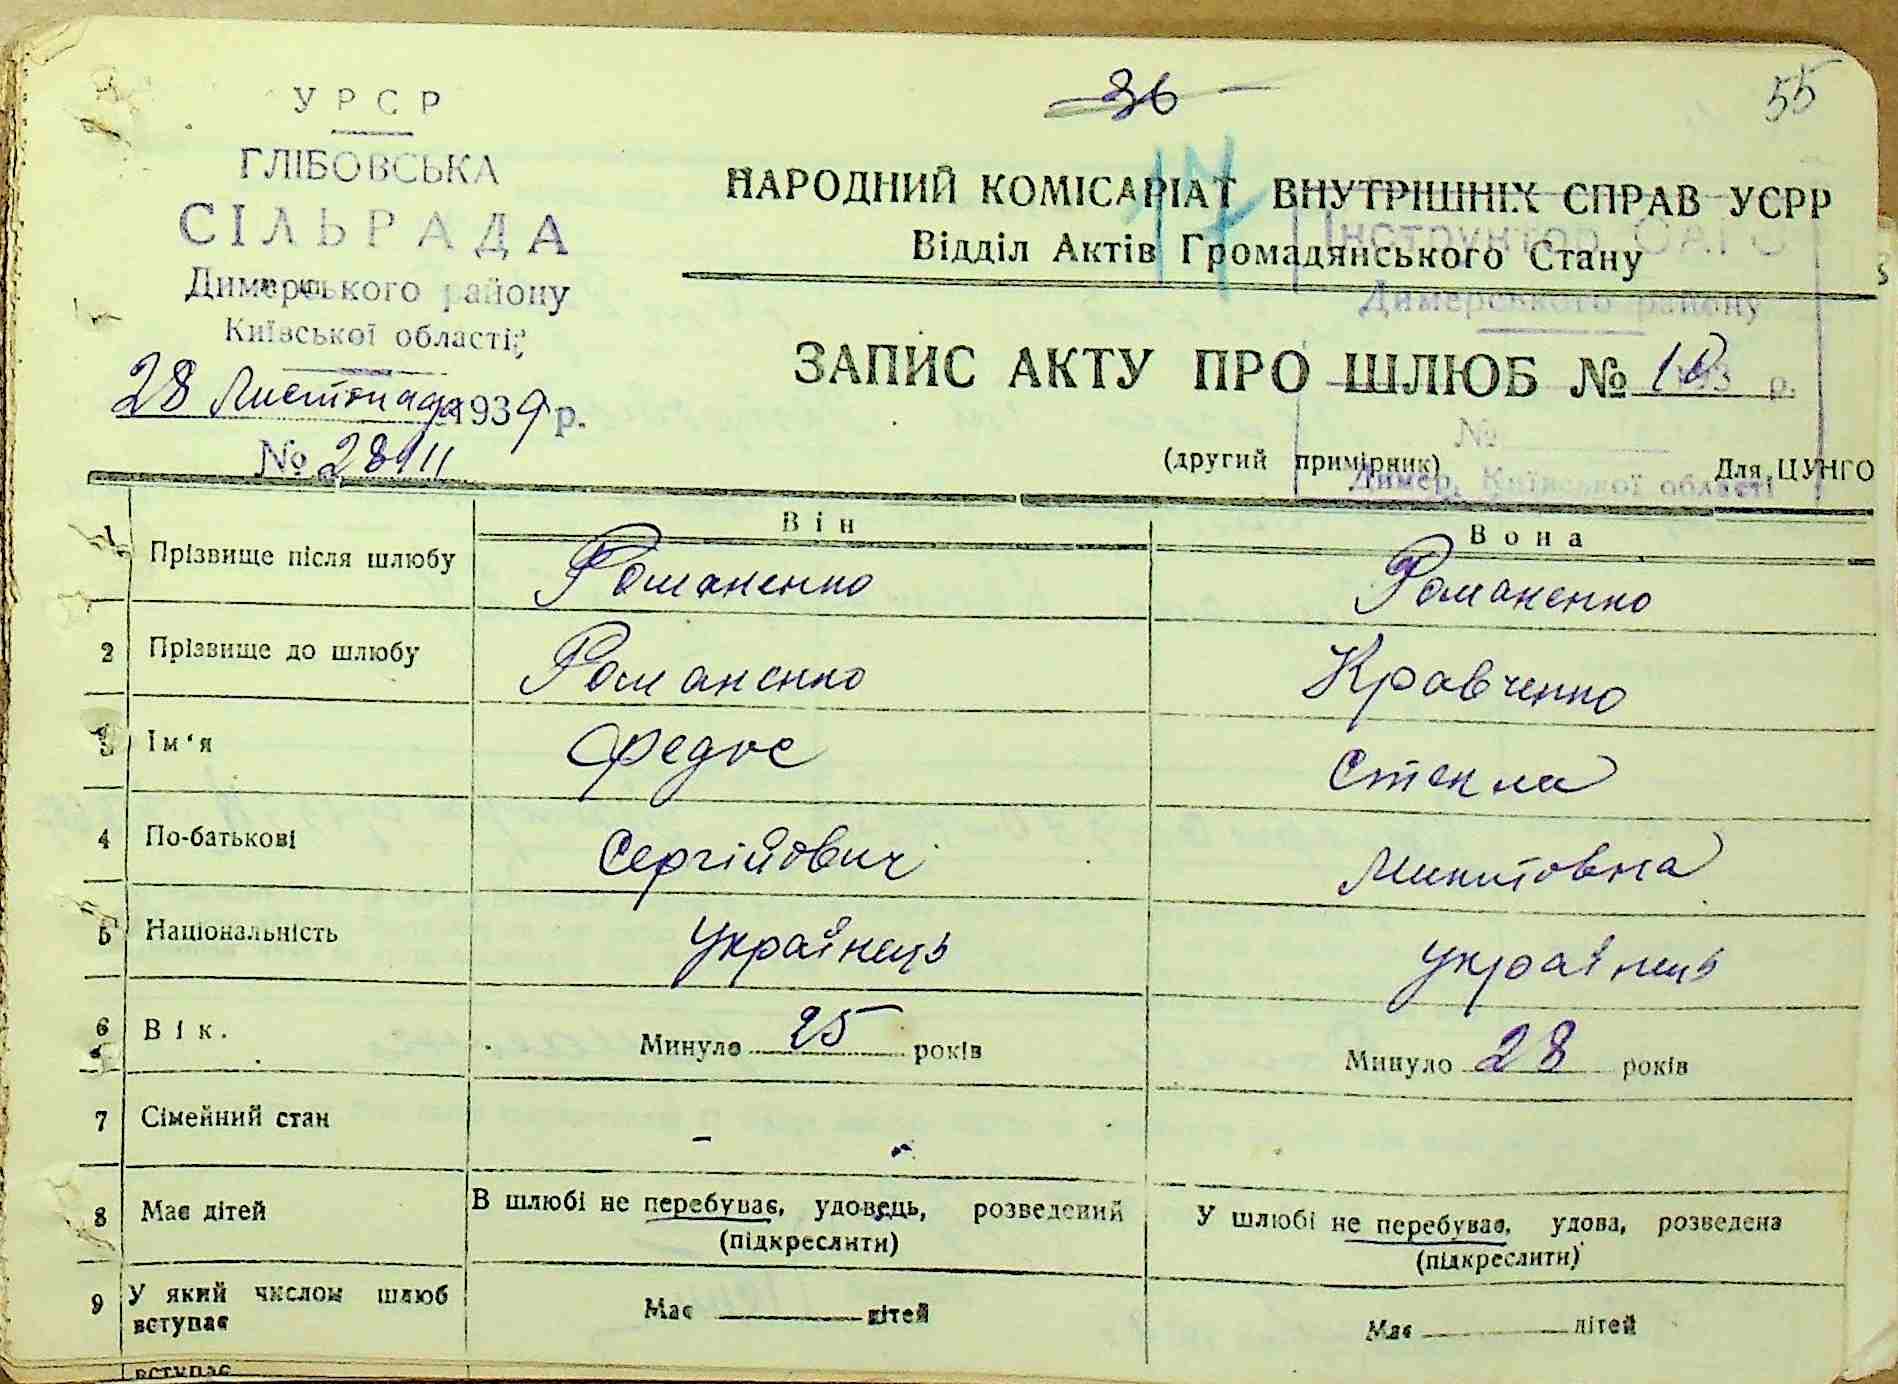 36
55
УРСР
ГЛІБОВСЬКА
СІЛЬРАДА
Димерського району
Київської області
28 Листопада 1939 р.
№ 28/11
17
НАРОДНИЙ КОМІСАРІАТ ВНУТРІШНІХ СПРАВ УСРР
Відділ Актів Громадянського Стану
Інструктор ОАГС
Димерського району
193 р.
№
Димер, Київської області
ЗАПИС АКТУ ПРО ШЛЮБ № 10
(другий примірник) Для ЦУНГО
Він Вона
1 Прізвище після шлюбу Романенко Романенко
2 Прізвище до шлюбу Романенко Кравченко
3 Ім'я Федос Стекла
4 По-батькові Сергійович Микитовна
5 Національність Українець Українець
6 Вік. Минуло 25 років Минуло 28 років
7 Сімейний стан - -
8 Має дітей В шлюбі не перебуває, удовець, розведений У шлюбі не перебуває, удова, розведена
(підкреслити) (підкреслити)
9 У який числом шлюб Має дітей Має дітей
вступає
вступає